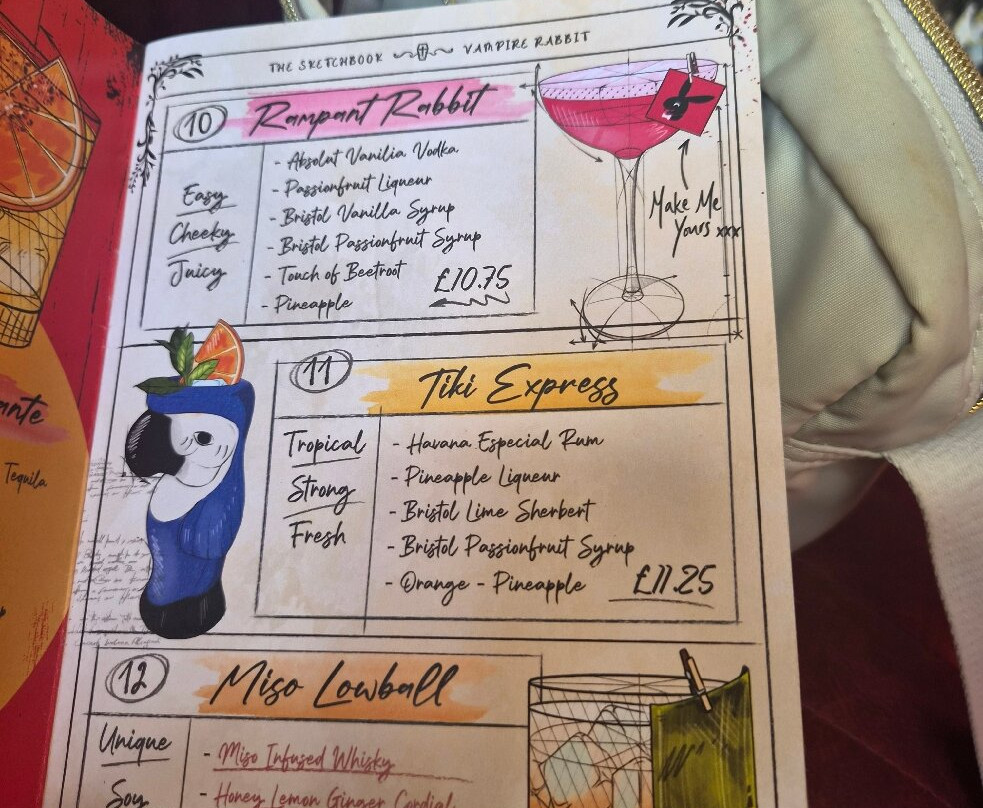 THE SKETCHBOOK VAMPIRE RABBIT
10 Rampant Rabbit
Easy
Cheeky
Juicy
- Absolut Vanilia Vodka
- Passionfruit Liqueur
- Bristol Vanilla Syrup
- Bristol Passionfruit Syrup
- Touch of Beetroot
- Pineapple
£10.75
Make Me
Yours xxx
11 Tiki Express
Tropical
Strong
Fresh
- Havana Especial Rum
- Pineapple Liqueur
- Bristol Lime Sherbert
- Bristol Passionfruit Syrup
- Orange - Pineapple
£11.25
12 Miso Lowball
Unique
Soy
- Miso Infused Whisky
- Honey Lemon Ginger Cordial
Tequila